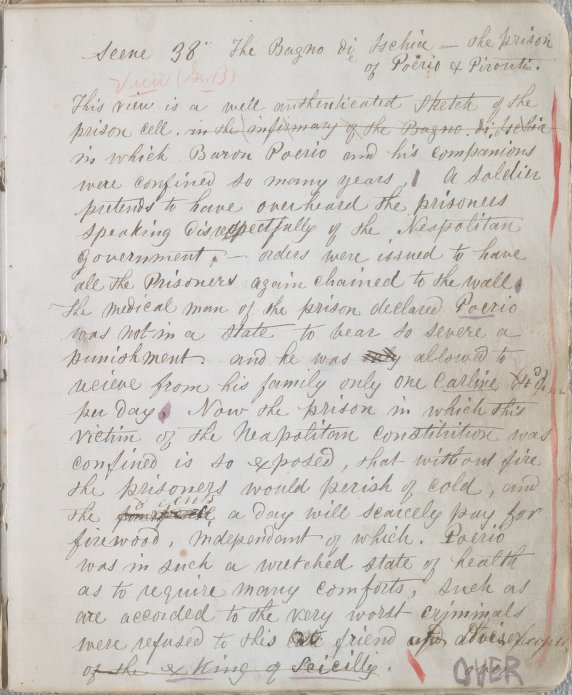 Scene 38 The Bagno di Ischia — the prison
of Poerio & Pironti.
View (No 13)
This view is a well authenticated sketch of the
prison cell. in the infirmary of the Bagno di Ischia
in which Baron Poerio and his companions
were confined so many years. A soldier
pretends to have overheard the prisoners
speaking disrespectfully of the Neapolitan
Government. — orders were issued to have
all the Prisoners again chained to the wall.
The medical man of the prison declared Poerio
was not in a state to bear so severe a
punishment. and he was only allowed to
recieve from his family only one Carline
per day. Now the prison in which this
victim of the Neapolitan constitution was
confined is so exposed, that without fire
the prisoners would perish of cold, and
the a day will scarcely pay for
firewood, independant of which. Poerio
was in such a wretched state of health
as to require many comforts, such as
are accorded to the very worst criminals
were refused to this friend adviser
of the Ex King of Scicilly.
OVER